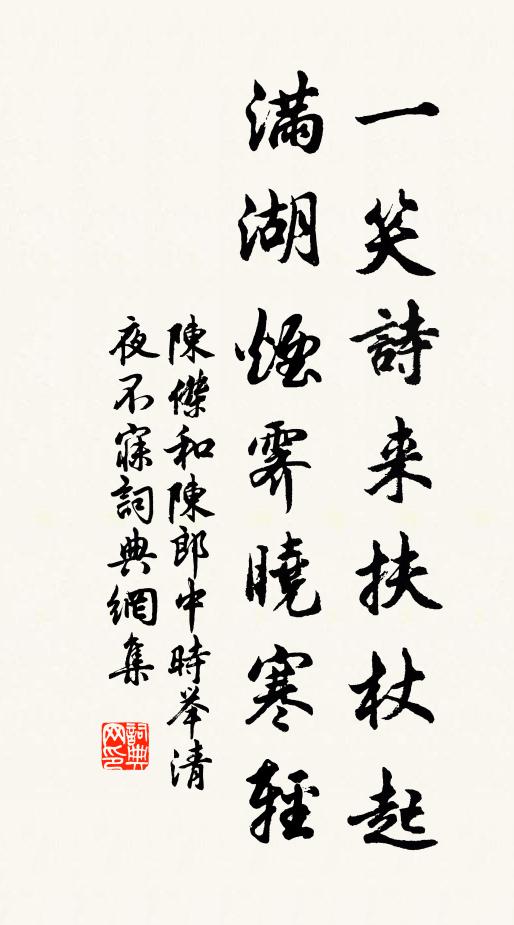 一笑詩来扶杖起
滿湖煙霽曉寒輕
陳傑和陳郎中時举清
夜不寐詞典網集
詞典网印